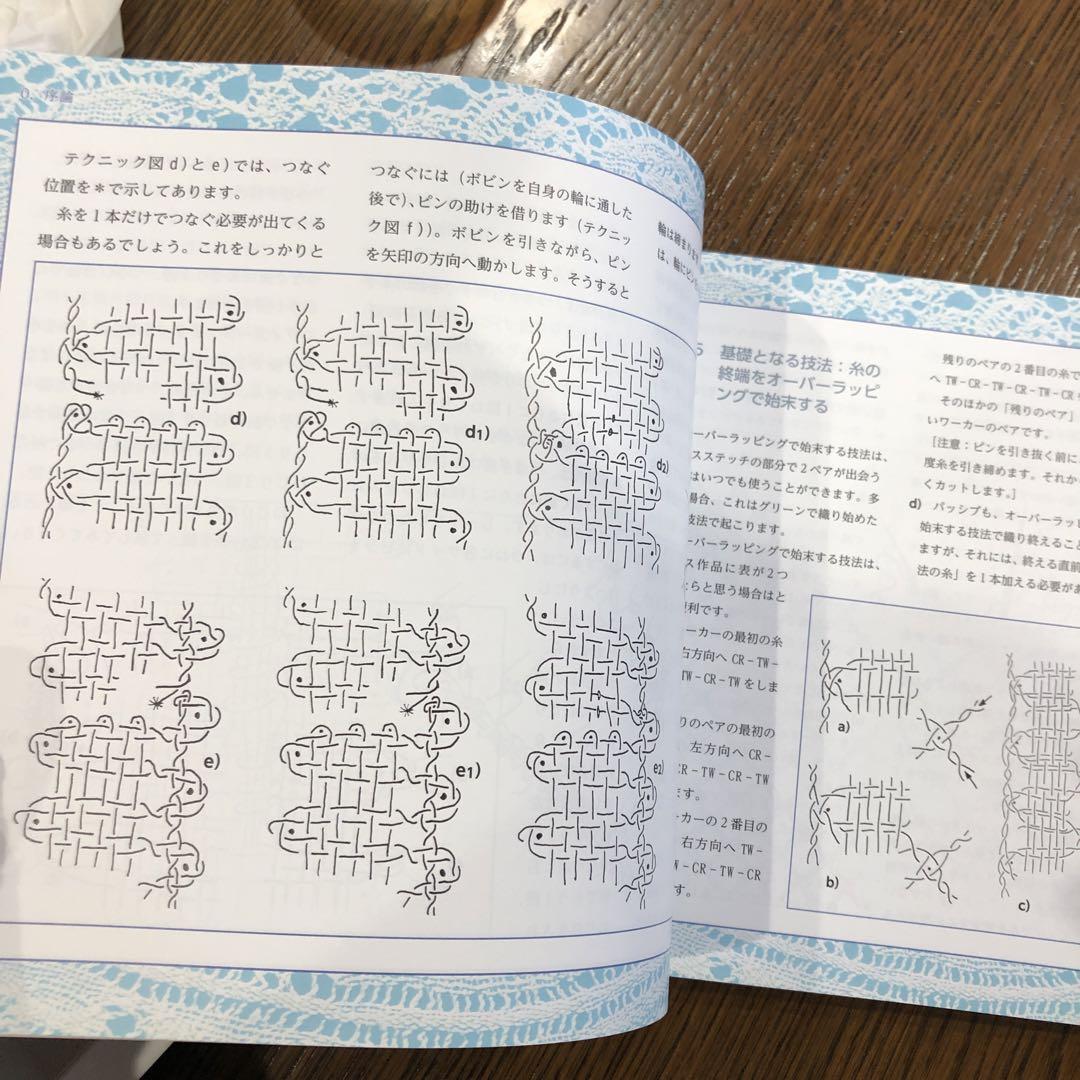 0. 序論
テクニック図 d)と e)では、つなぐ
位置を＊で示してあります。
糸を1本だけでつなぐ必要が出てくる
場合もあるでしょう。これをしっかりと
つなぐには（ボビンを自身の輪に通した
後で）、ピンの助けを借ります（テクニッ
ク図 f)）。ボビンを引きながら、ピン
を矢印の方向へ動かします。そうすると
輪は締まります
は、輪にピン
d)
d₁)
d₂)
e)
e₁)
e₂)
5 基礎となる技法：糸の
終端をオーバーラッピ
ングで始末する
ーバーラッピングで始末する技法は、
スステッチの部分で2ペアが出会う
はいつでも使うことができます。多
場合、これはグリーンで織り始めた
技法で起こります。
ーバーラッピングで始末する技法は、
ス作品に表が2つ
たらと思う場合はと
便利です。
ーカーの最初の糸
右方向へ CR－TW－
TW－CR－TW をしま
りのペアの最初の
左方向へ CR－
CR－TW－CR－TW
ます。
ーカーの2番目の
右方向へ TW－
W－CR－TW－CR
す。
残りのペアの2番目の糸で
へ TW－CR－TW－CR－TW－CR
そのほかの「残りのペア」
いワーカーのペアです。
［注意：ピンを引き抜く前に
度糸を引き締めます。それか
くカットします。］
d) パッシブも、オーバーラッピ
始末する技法で織り終えること
ますが、それには、終える直前
法の糸」を1本加える必要があ
a)
b)
c)